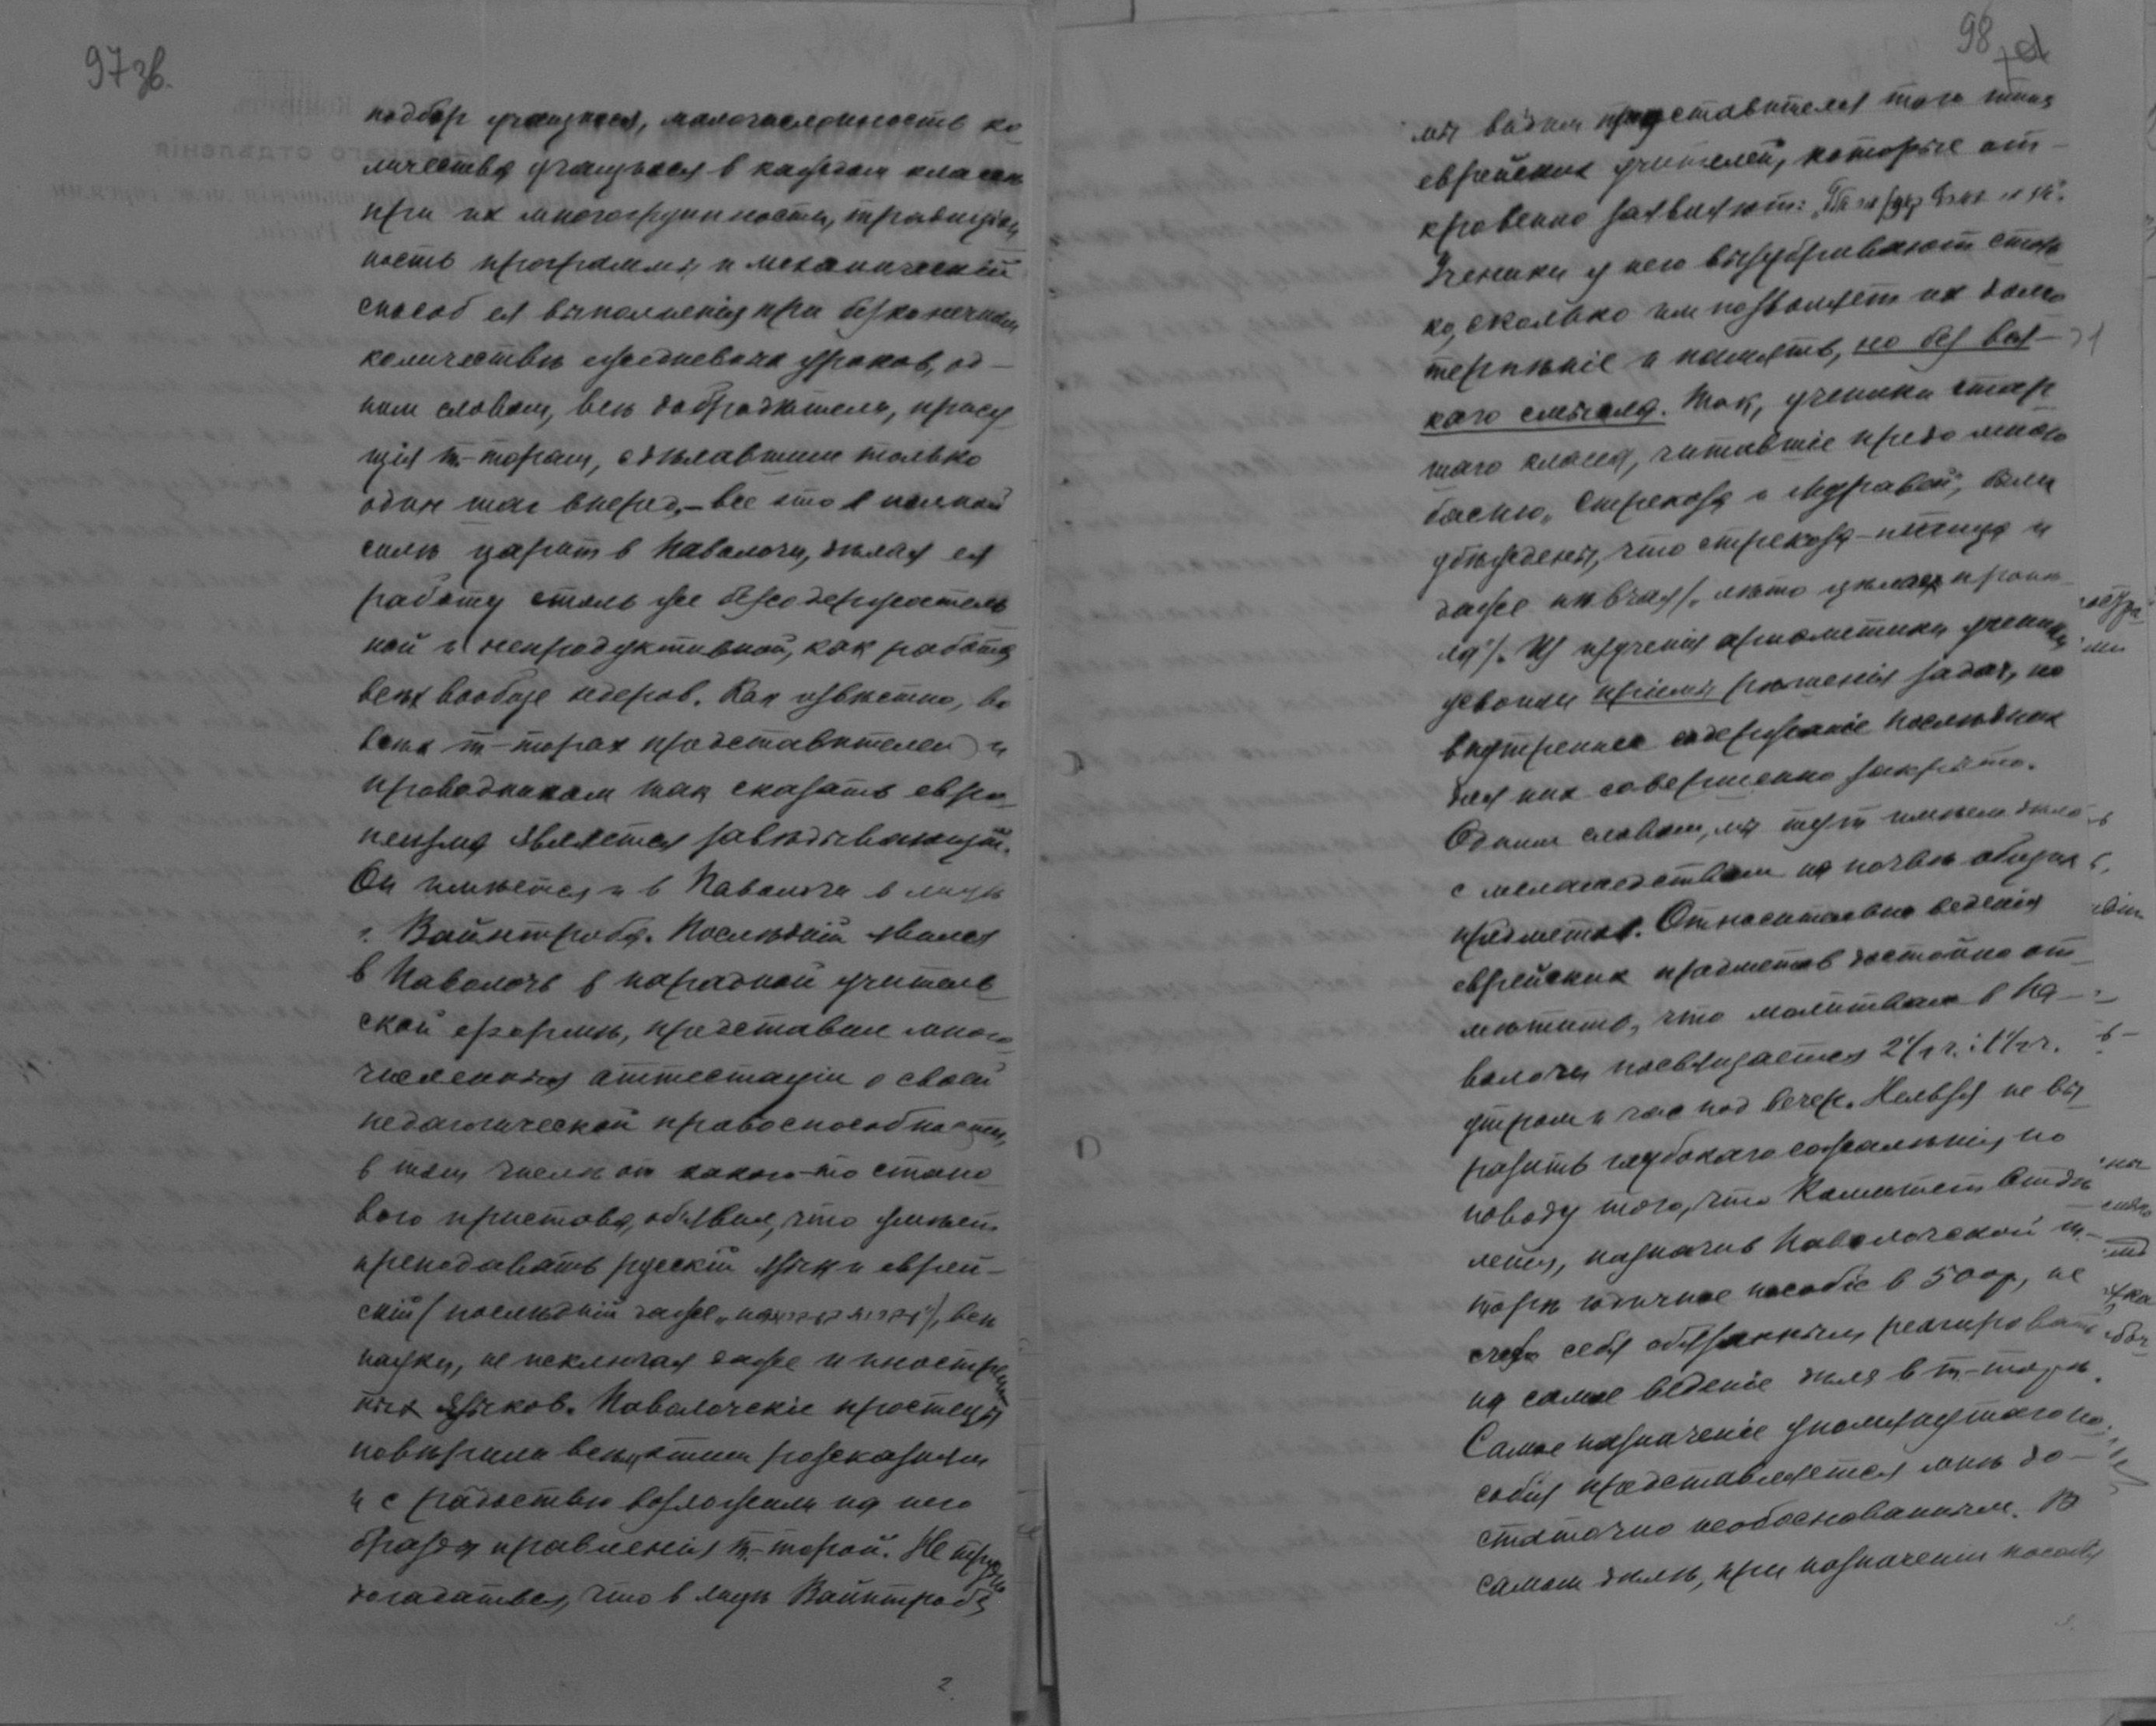 97 зв.
подбор учащихся, малочисленность ко
личества учащихся в каждом классѣ
при их многогруппности, традиціон
ность программы и механическій
способ ея выполненія при безконечном
количествѣ ежедневных уроков, од-
ним словом, всѣ добродѣтели, прису
щія т.-торам, сдѣлавшим только
один шаг вперед, - все это в полной
силѣ царит в Паволочи, дѣлая ея
работу столь же безсодержатель
ной и непродуктивной, как работа
всѣх вообще хедеров. Как извѣстно, во
всѣх т.-торах представителем и
проводником так сказать евро-
пеизма является завѣдывающій.
Он имѣется и в Паволочи в лицѣ
г. Вайнтроба. Послѣдній явился
в Паволочь в парадной учитель
ской формѣ, представил много
численныя аттестаціи о своей
педагогической правоспособности,
в том числѣ от какого-то стано
вого пристава, объявил, что умѣет
преподавать русскій язык и еврей-
скій (послѣдній даже „на), всѣ
науки, не исключая даже и иностран
ных языков. Паволочскіе простецы
повѣрили всѣм этим розсказням
и с радостью возложили на него
бразды правленія т.-торой. Не трудно
догадаться, что в лицѣ Вайнтроба
2
98
мы видим представителя того типа
еврейских учителей, которые от-
кровенно заявляют:
Ученики у него вызубривают столь
ко, сколько им позволяет их долго
терпѣніе и память, но без вся-
каго смысла. Так, ученики стар
шаго класса, читавшіе предо мною
басню „Стрекоза и Муравей", были
убѣждены, что стрекоза - птица и
даже пѣвчая (лѣто цѣлое пропѣ-
ла"). Из изученія арифметики ученики
усвоили пріемы рѣшенія задач, но
внутреннее содержаніе послѣдних
для них совершенно закрыто.
Одним словом, мы тут имѣем дѣло
с меламедством на почвѣ общих
предметов. Относительно веденія
еврейских предметов достойно от-
мѣтить, что молитвам в Па-
волочи посвящается 2½ ч.: 1½ ч.
утром и час под вечер. Нельзя не вы
разить глубокаго сожалѣнія по
поводу того, что Комитет Отдѣ
ленія, назначив Паволочской т.-
торѣ годичное пособіе в 500 р., не
счел себя обязанным реагировать
на самое веденіе дѣла в т.-торѣ.
Самое назначеніе упомянутаго по
собія представляется мнѣ до-
статочно необоснованным. В
самом дѣлѣ, при назначеніи пособія